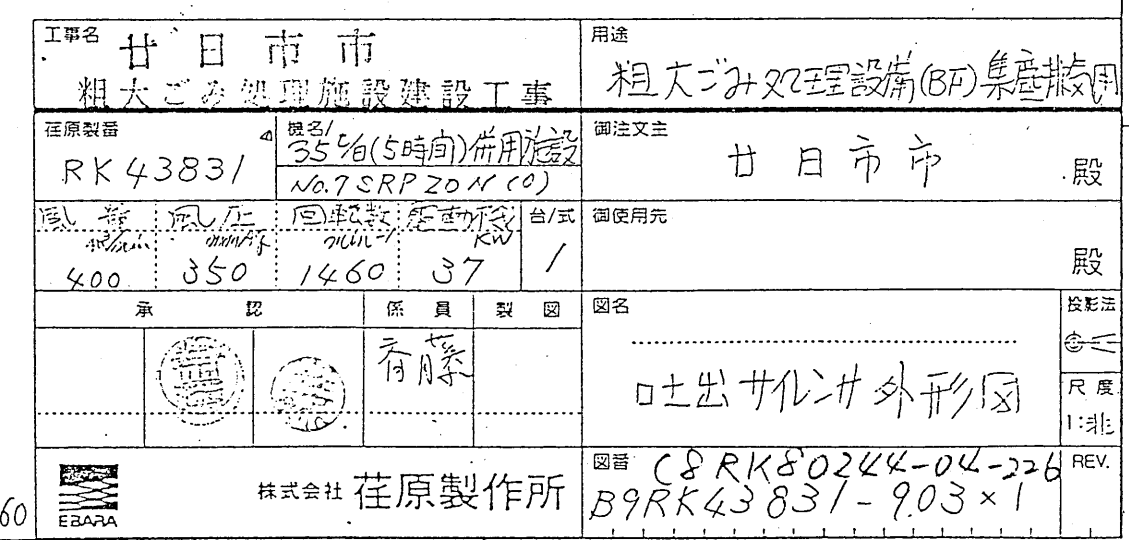 工事名 廿日市市
粗大ごみ処理施設建設工事
用途
粗大ごみ処理設備(BF)集塵排気用
荏原製番
RK43831
機名/
35t/日(5時間)併用施設
No.7 SRP ZON (O)
御注文主
廿日市市 殿
風量 風圧 回転数 電動機 台/式
m³/min mmAq KW
400 350 1460 37 1
御使用先
殿
承認 係員 製図
斉藤
図名
吐出サイレンサ外形図
投影法
尺度
1:非
EBARA
株式会社 荏原製作所
図番 C8RK80244-04-226
B9RK43831-903×1
REV.
60